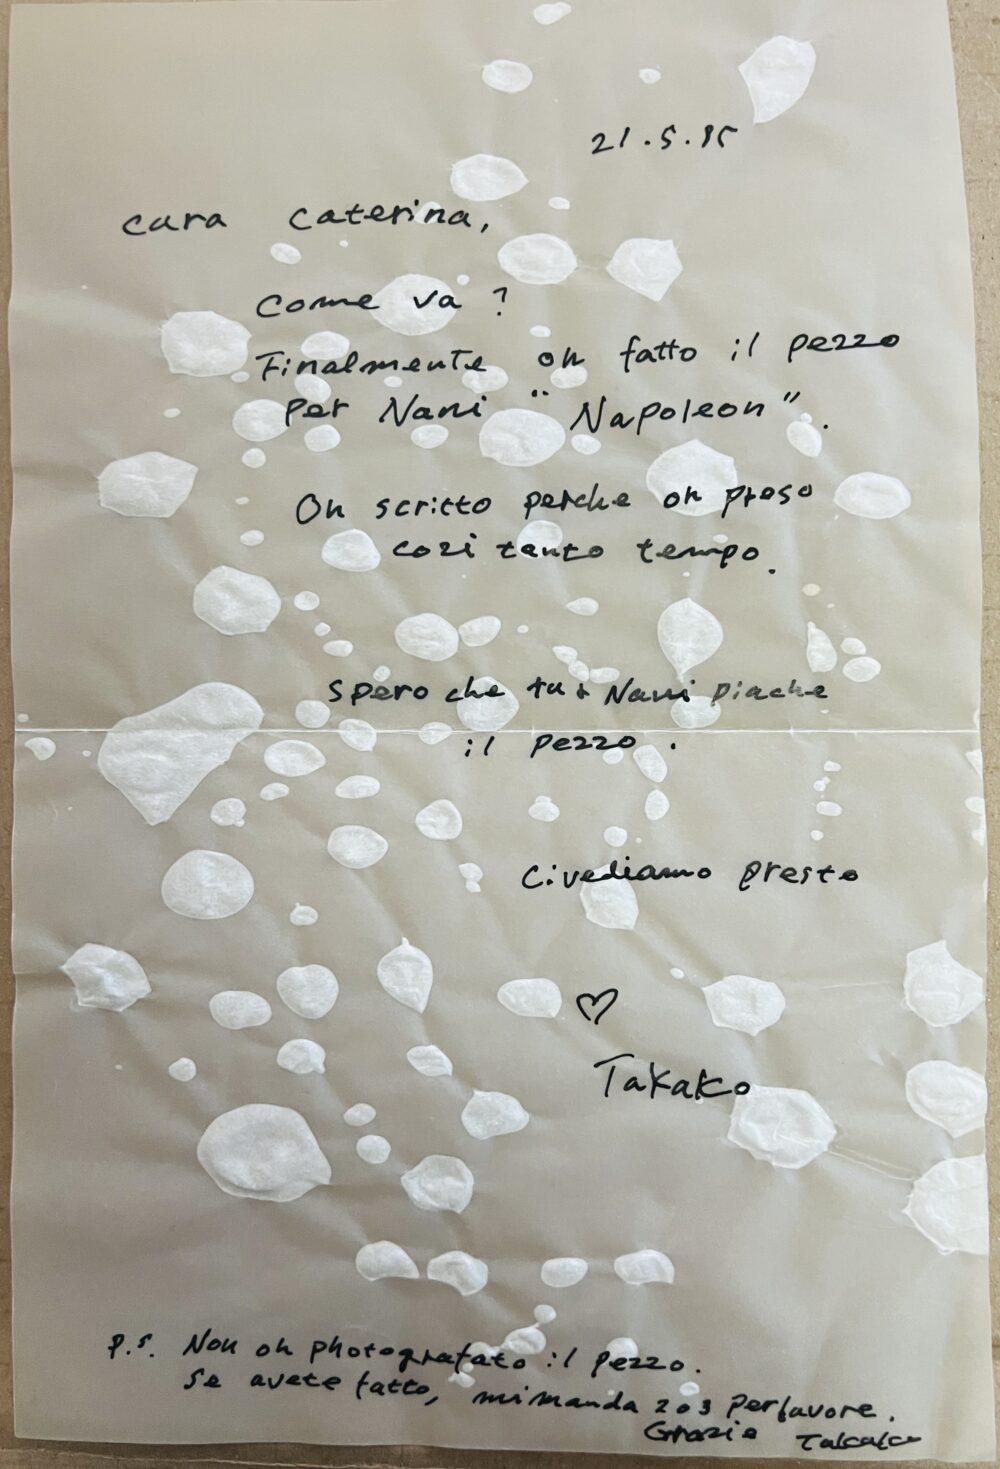 21.5.95
Cara Caterina,
Come va ?
Finalmente oh fatto il pezzo
per Nani "Napoleon".
Oh scritto perche oh preso
cozi tanto tempo.
Spero che tu + Nani piache
il pezzo.
Civediamo presto
♡
Takako
P.S. Non oh photografato il pezzo.
Se avete fatto, mimanda 2 o 3 perfavore.
Grazie Takako